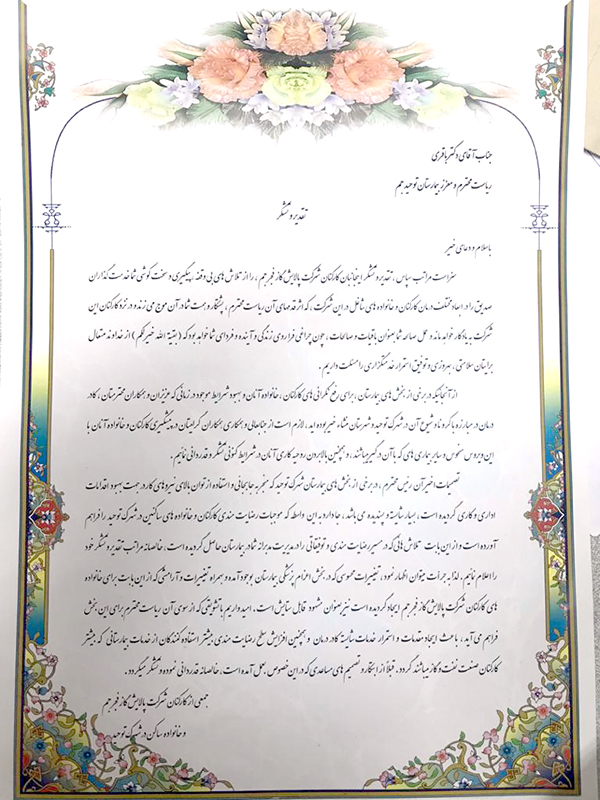 جناب آقای دکتر باقری
ریاست محترم و معزز بیمارستان توحید جم
تقدیر و تشکر
باسلام و دعای خیر
سزاست مراتب سپاس ، تقدیر و تشکر اینجانبان کارکنان شرکت پالایش گاز فجر جم ، را از تلاش های بی وقفه ، پیگیری و سخت کوشی شما خدمت گذاران
صدیق را در ابعاد مختلف درمان کارکنان و خانواده های شاغل در این شرکت ، که اثر قدمهای آن ریاست محترم ، پشتکار و همت شما در آن موج می زند و در نزد کارکنان این
شرکت به یادگار خواهد ماند و عمل صالحه شما بعنوان باقیات و صالحات ، چون چراغی فراروی زندگی و آینده و فردای شما خواهد بود که ( بقیة الله خیر لکم ) از خداوند متعال
برایتان سلامتی ، بهروزی و توفیق استمرار خدمتگزاری را مسئلت داریم .
از آنجائیکه در برخی از بخش های بیمارستان ، برای رفع نگرانی های کارکنان ، خانواده آنان و بهبود شرایط موجود در زمانی که عزیزان و همکاران محترمتان ، کادر
درمان در مبارزه با کرونا و شیوع آن در شهرک توحید و شهرستان منشاء خیر بوده اید ، لازم است از جنابعالی و همکاری همکاران گرامیتان در پیشگیری کارکنان و خانواده آنان با
این ویروس منحوس و سایر بیماری های که با آن درگیر میباشند ، و همچنین بالا بردن روحیه کاری آنان در شرایط کنونی تشکر و قدردانی نمائیم .
تصمیمات اخیر آن رئیس محترم ، در برخی از بخش های بیمارستان شهرک توحید که منجر به جابجائی و استفاده از توان بالای نیروهای کار در جهت بهبود اقدامات
اداری و کاری گردیده است ، بسیار شایسته و پسندیده می باشد ، جا دارد به این واسطه که موجبات رضایت مندی کارکنان و خانواده های ساکنین در شهرک توحید را فراهم
آورده است و از این بابت تلاش هایی که در مسیر رضایت مندی و توفیقاتی را در مدیریت مدبرانه شما در بیمارستان حاصل گردیده است ، خالصانه مراتب تقدیر و تشکر خود
را اعلام نمائیم . لذا به جرأت میتوان اظهار نمود ، تغییرات محسوسی که در بخش اعزام پزشکی بیمارستان بوجود آمده و بهمراه تغییرات و آرامشی که از این بابت برای خانواده
های کارکنان شرکت پالایش گاز فجر جم ایجاد گردیده است نیز بعنوان مشهود قابل ستایش است ، امیدواریم با تشویقی که از سوی آن ریاست محترم برای این بخش
فراهم می آید ، باعث ایجاد مقدمات و استمرار خدمات شایسته کادر درمان و همچنین افزایش سطح رضایت مندی بیشتر استفاده کنندگان از خدمات بیمارستانی که بیشتر
کارکنان صنعت نفت و گاز میباشند گردد . قبلاً از ابتکار و تصمیم های مساعدی که در این خصوص بعمل آمده است ، خالصانه قدردانی نموده و تشکر میگردد .
جمعی از کارکنان شرکت پالایش گاز فجر جم
و خانواده ساکن در شهرک توحید